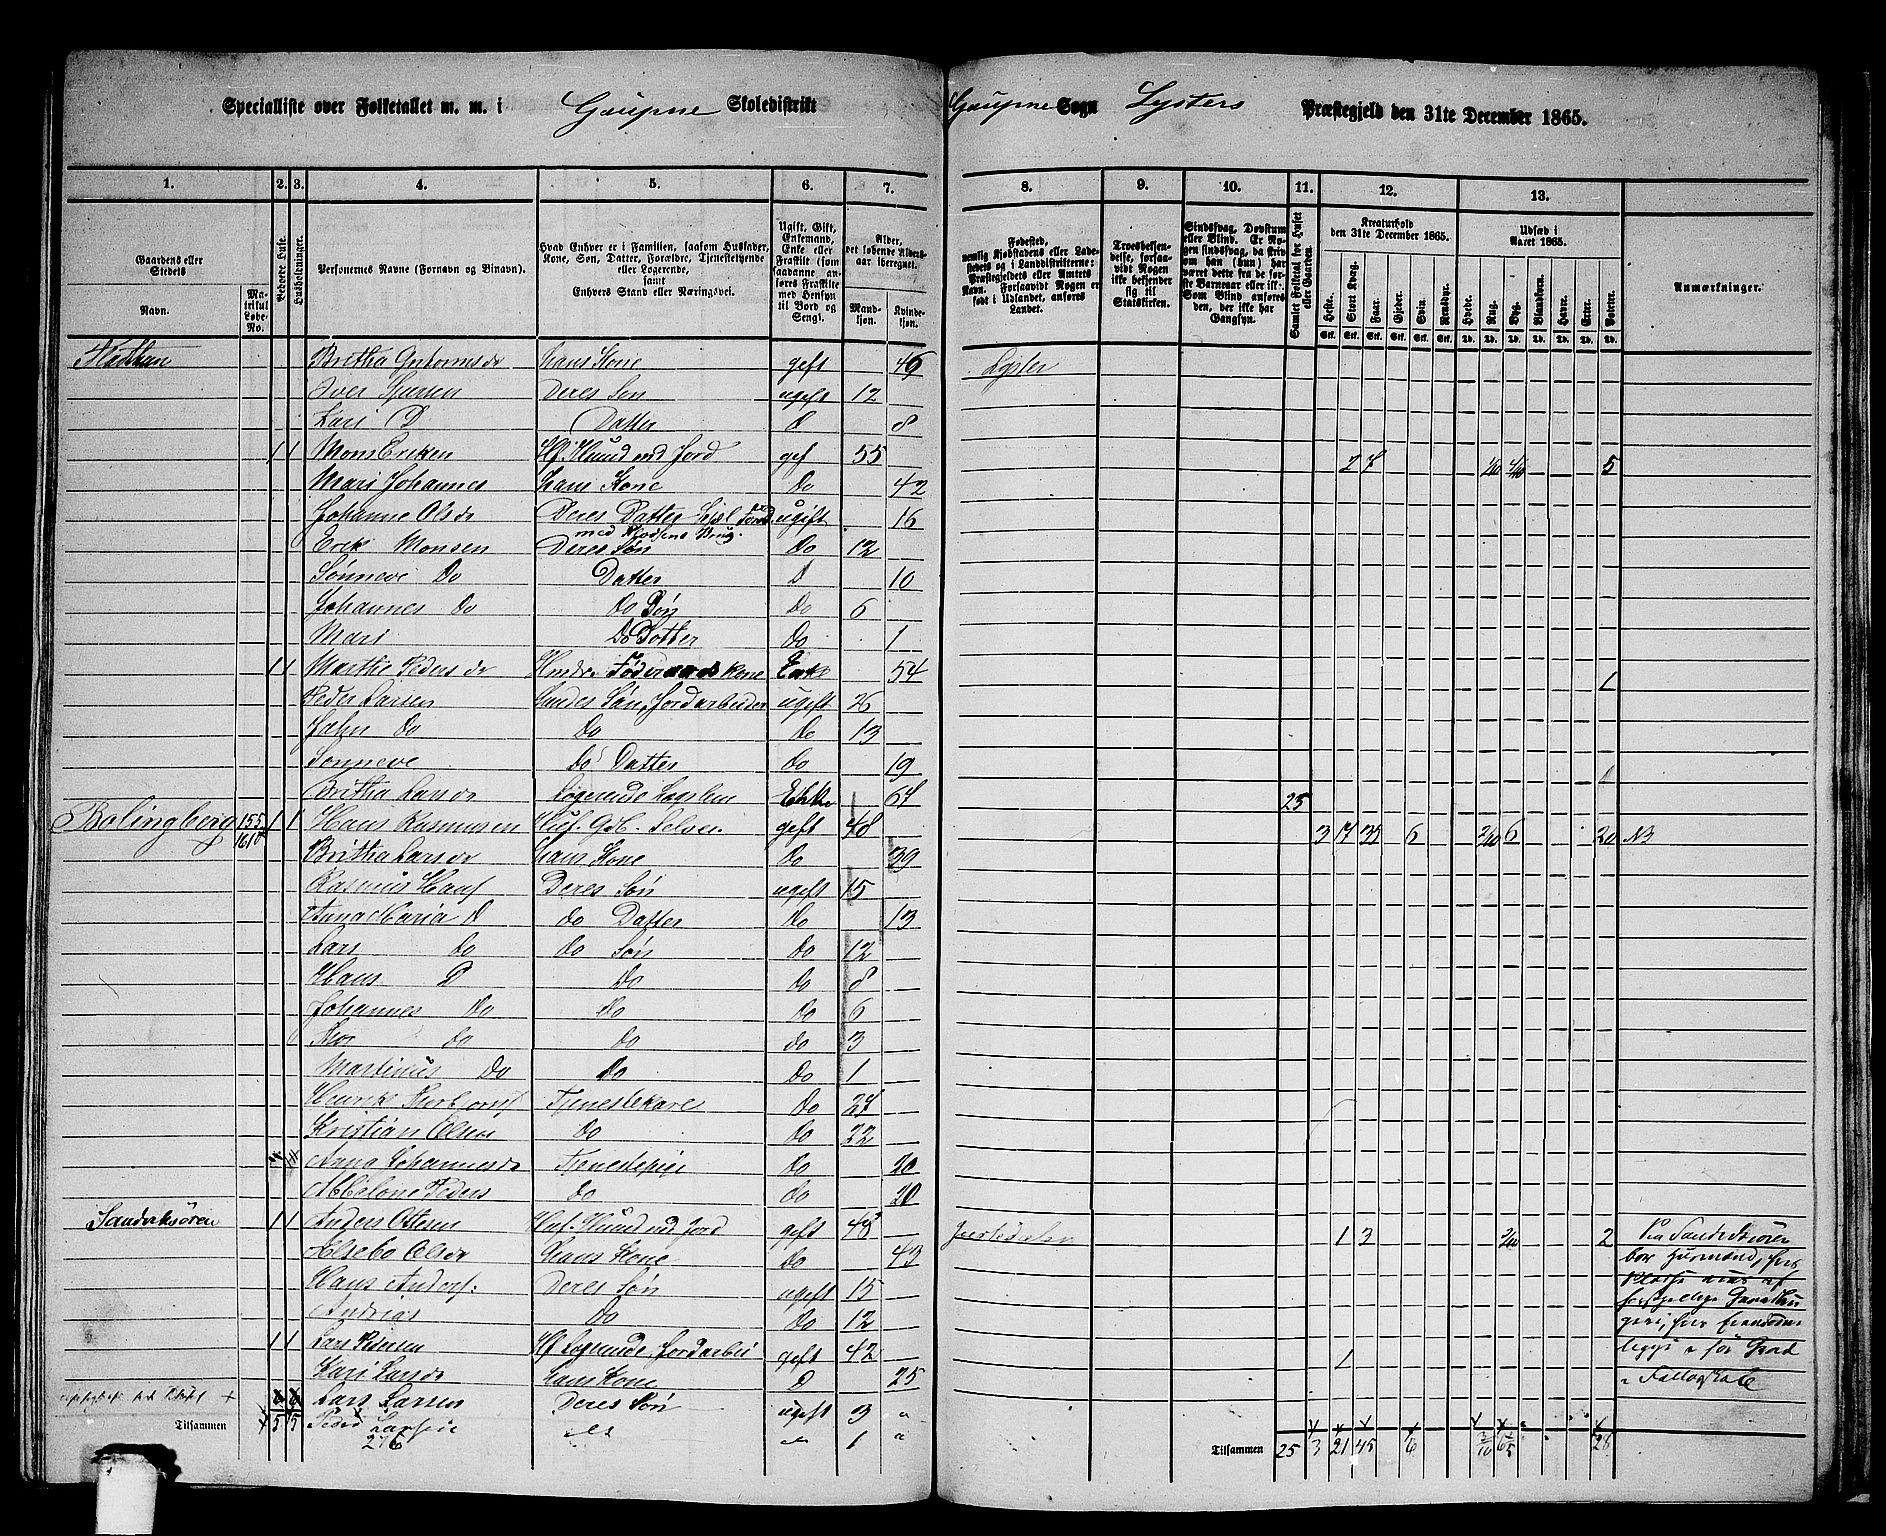 Specialliste over Folketallet m. m. i Gaupne Skoledistrikt Gaupne Sogn Lysters Præstegjeld den 31te December 1865.
1. 2. 3. 4. 5. 6. 7. 8. 9. 10. 11. 12. 13.
Gaardens eller Stedets
Navn.
Matrikul Løbe-No.
Beboede Huse.
Husholdninger.
Personernes Navne (Fornavn og Binavn).
Hvad Enhver er i Familien, saasom Husfader, Kone, Søn, Datter, Forældre, Tjenestetyende eller Logerende,
samt
Enhvers Stand eller Næringsvei.
Ugift, Gift, Enkemand, Enke eller Fraskilt (som saadanne anføres Fraskilte med Hensyn til Bord og Seng).
Alder, det løbende Aldersaar iberegnet.
Mandkjøn.
Kvindekjøn.
Fødested, nemlig Kjøbstadens eller Ladestedets og i Landdistrikterne: Præstegjeldets eller Amtets Navn. Forsaavidt Nogen er født i Udlandet, anføres Landet.
Troesbekjendelse, forsaavidt Nogen ikke bekjender sig til Statskirken.
Sindssvag, Døvstum eller Blind. Er Nogen sindssvag, da skrives om han (hun) har været dette fra de første Barneaar eller ikke. Som Blind anføres den, der ikke har Gangsyn.
Samlet Folketal for Huset eller Gaarden.
Kreaturhold den 31te December 1865.
Heste. Stort Kvæg. Faar. Gjeder. Sviin. Rensdyr.
Udsæd i Aaret 1865.
Hvede. Rug. Byg. Blandkorn. Havre. Erter. Poteter.
Anmærkninger.
Britha Guttormsdr Hans Kone gift 46 Lyster
Iver Deres Søn ugift 12
Kari D Datter D 8
1 1 Mons Eriksen Hf. Huusmd med Jord gift 55 2 7 5
Mari Johannes Hans Kone Do 42
Johanne Olsdr Deres Datter ugift 16
Erik Monsen Deres Søn Do 12
Sønneve Do Datter D 10
Johannes Do Do Søn Do 6
Mari Do Datter Do 1
1 1 Marthe Pedersdr Føderaadskone Enke 54 1
Peder Larsen Hendes Søn, Jordarbeider ugift 26
John Do Do Do 13
Sønneve Do Datter Do 19
Britha Larsdr Logerende Enke 67 25
Bolingberg 155 1 1 Hans Rasmusen Huf. Gb. Selvei. gift 48 3 17 35 6 6 20 NB
Britha Larsdr Hans Kone Do 39
Rasmus Hans Deres Søn ugift 15
Anna Maria D do Datter Do 13
Lars do do Søn Do 12
Hans D Do do 8
Johannes Do do Do 6
do do do 3
Martinus Do Do Do 1
Henrik Tjenestekarl Do 27
Kristian Olsen do Do 22
Anna Johannesdr Tjenestepige Do 20
Abbelone Peders do do 20
Sandviksøren 1 1 Anders Ottesen Huf. Huusmd med Jord gift 48 Justedalen 1 3 2 Paa Sandvigsøren
Alsebo Olsdr Hans Kone Do 43
Hans Anders: Deres Søn ugift 15
Andrias do Do 12
1 1 Lars Pedersen Hf Logerende Jordarbei gift 42 1
Kari Larsdr Hans Kone D 25
Lars Larsen Deres Søn ugift 3
Peder Larsen 1
Tilsammen 5 5 276 Tilsammen 25 3 21 45 6 28